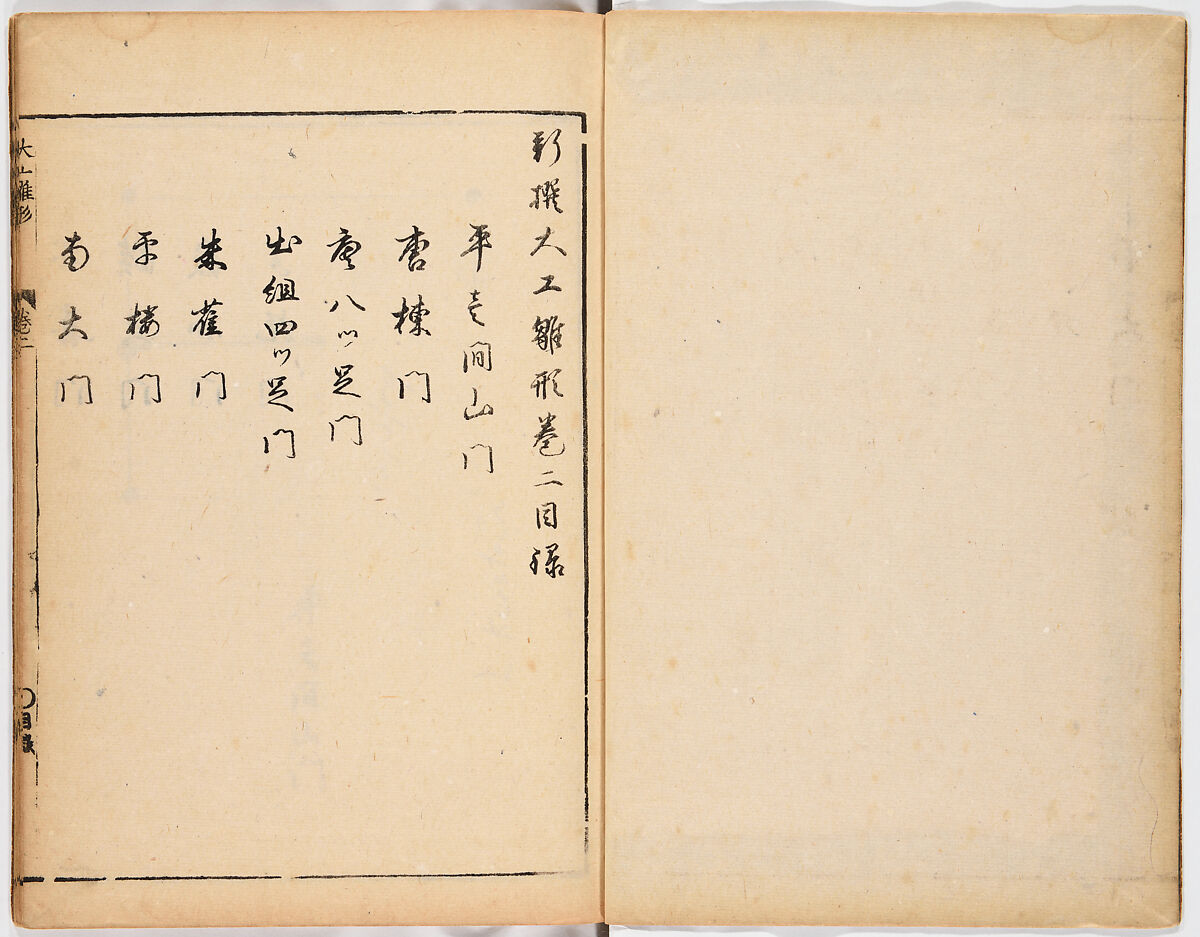 新撰大工雛形巻二目録
平壱間山門
唐棟門
唐八ツ足門
出組四ツ足門
朱雀門
平楼門
南大門
大工雛形
巻二
目録